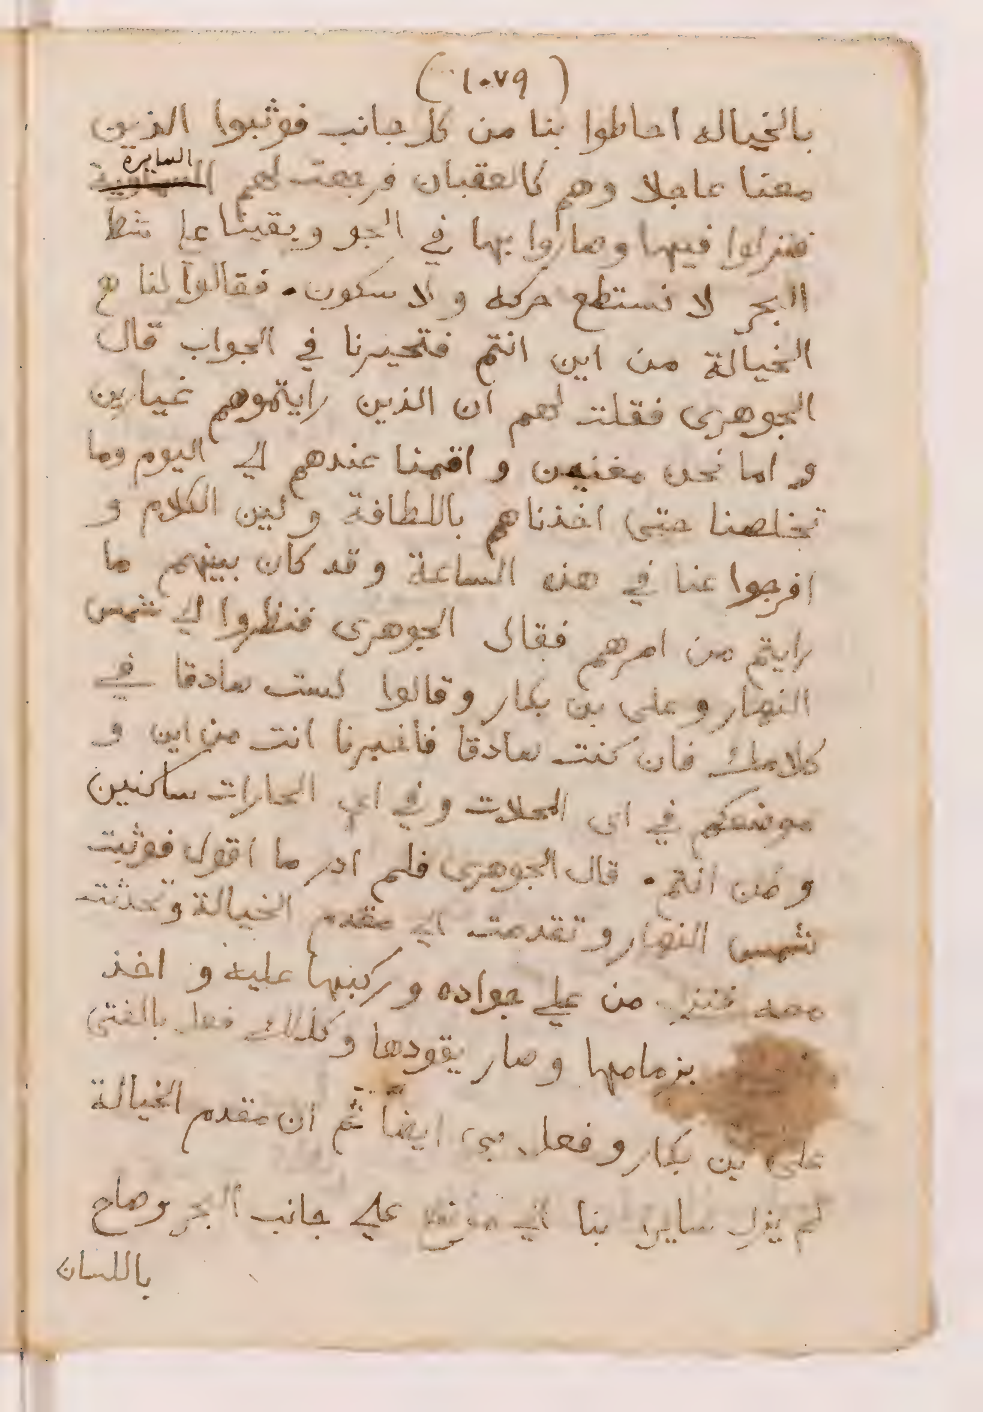 (١٠٧٩)
بالخياله احاطوا بنا من كل جانب فوثبوا الذين
السايرة
معنا عاجلا وهم كالعقبان فرجعت لهم
فنزلوا فيها وصاروا بها في الجو وبقينا علي شط
البحر لا نستطع حركه ولا سكون. فقالوا لنا
الخيالة من اين انتم فتحيرنا في الجواب قال
الجوهري فقلت لهم ان الذين رايتموهم غيارين
و اما نحن مغنيين و اقمنا عندهم الي اليوم وما
تخلصنا حتي اخذناهم باللطافة ولين الكلام و
افرجوا عنا في هذه الساعة وقد كان بينهم ما
رايتم من امرهم فقال الجوهري فنظروا الي شمس
النهار وعلي بن بكار وقالوا لست صادقا في
كلامك فان كنت صادقا فاخبرنا انت من اين و
موضعكم في اي المحلات وفي اي الحارات ساكنين
و من انتم. قال الجوهري فلم ادر ما اقول فوثبت
شمس النهار وتقدمت الي مقدم الخيالة وتحدثت
معه فنزل من علي جواده وركبها عليه و اخذ
بزمامها وصار يقودها وكذلك فعل بالفتي
علي بن بكار وفعل بي ايضاً ثم ان مقدم الخيالة
لم يزل سايرا بنا الي موضع علي جانب البحر وصاح
باللسان